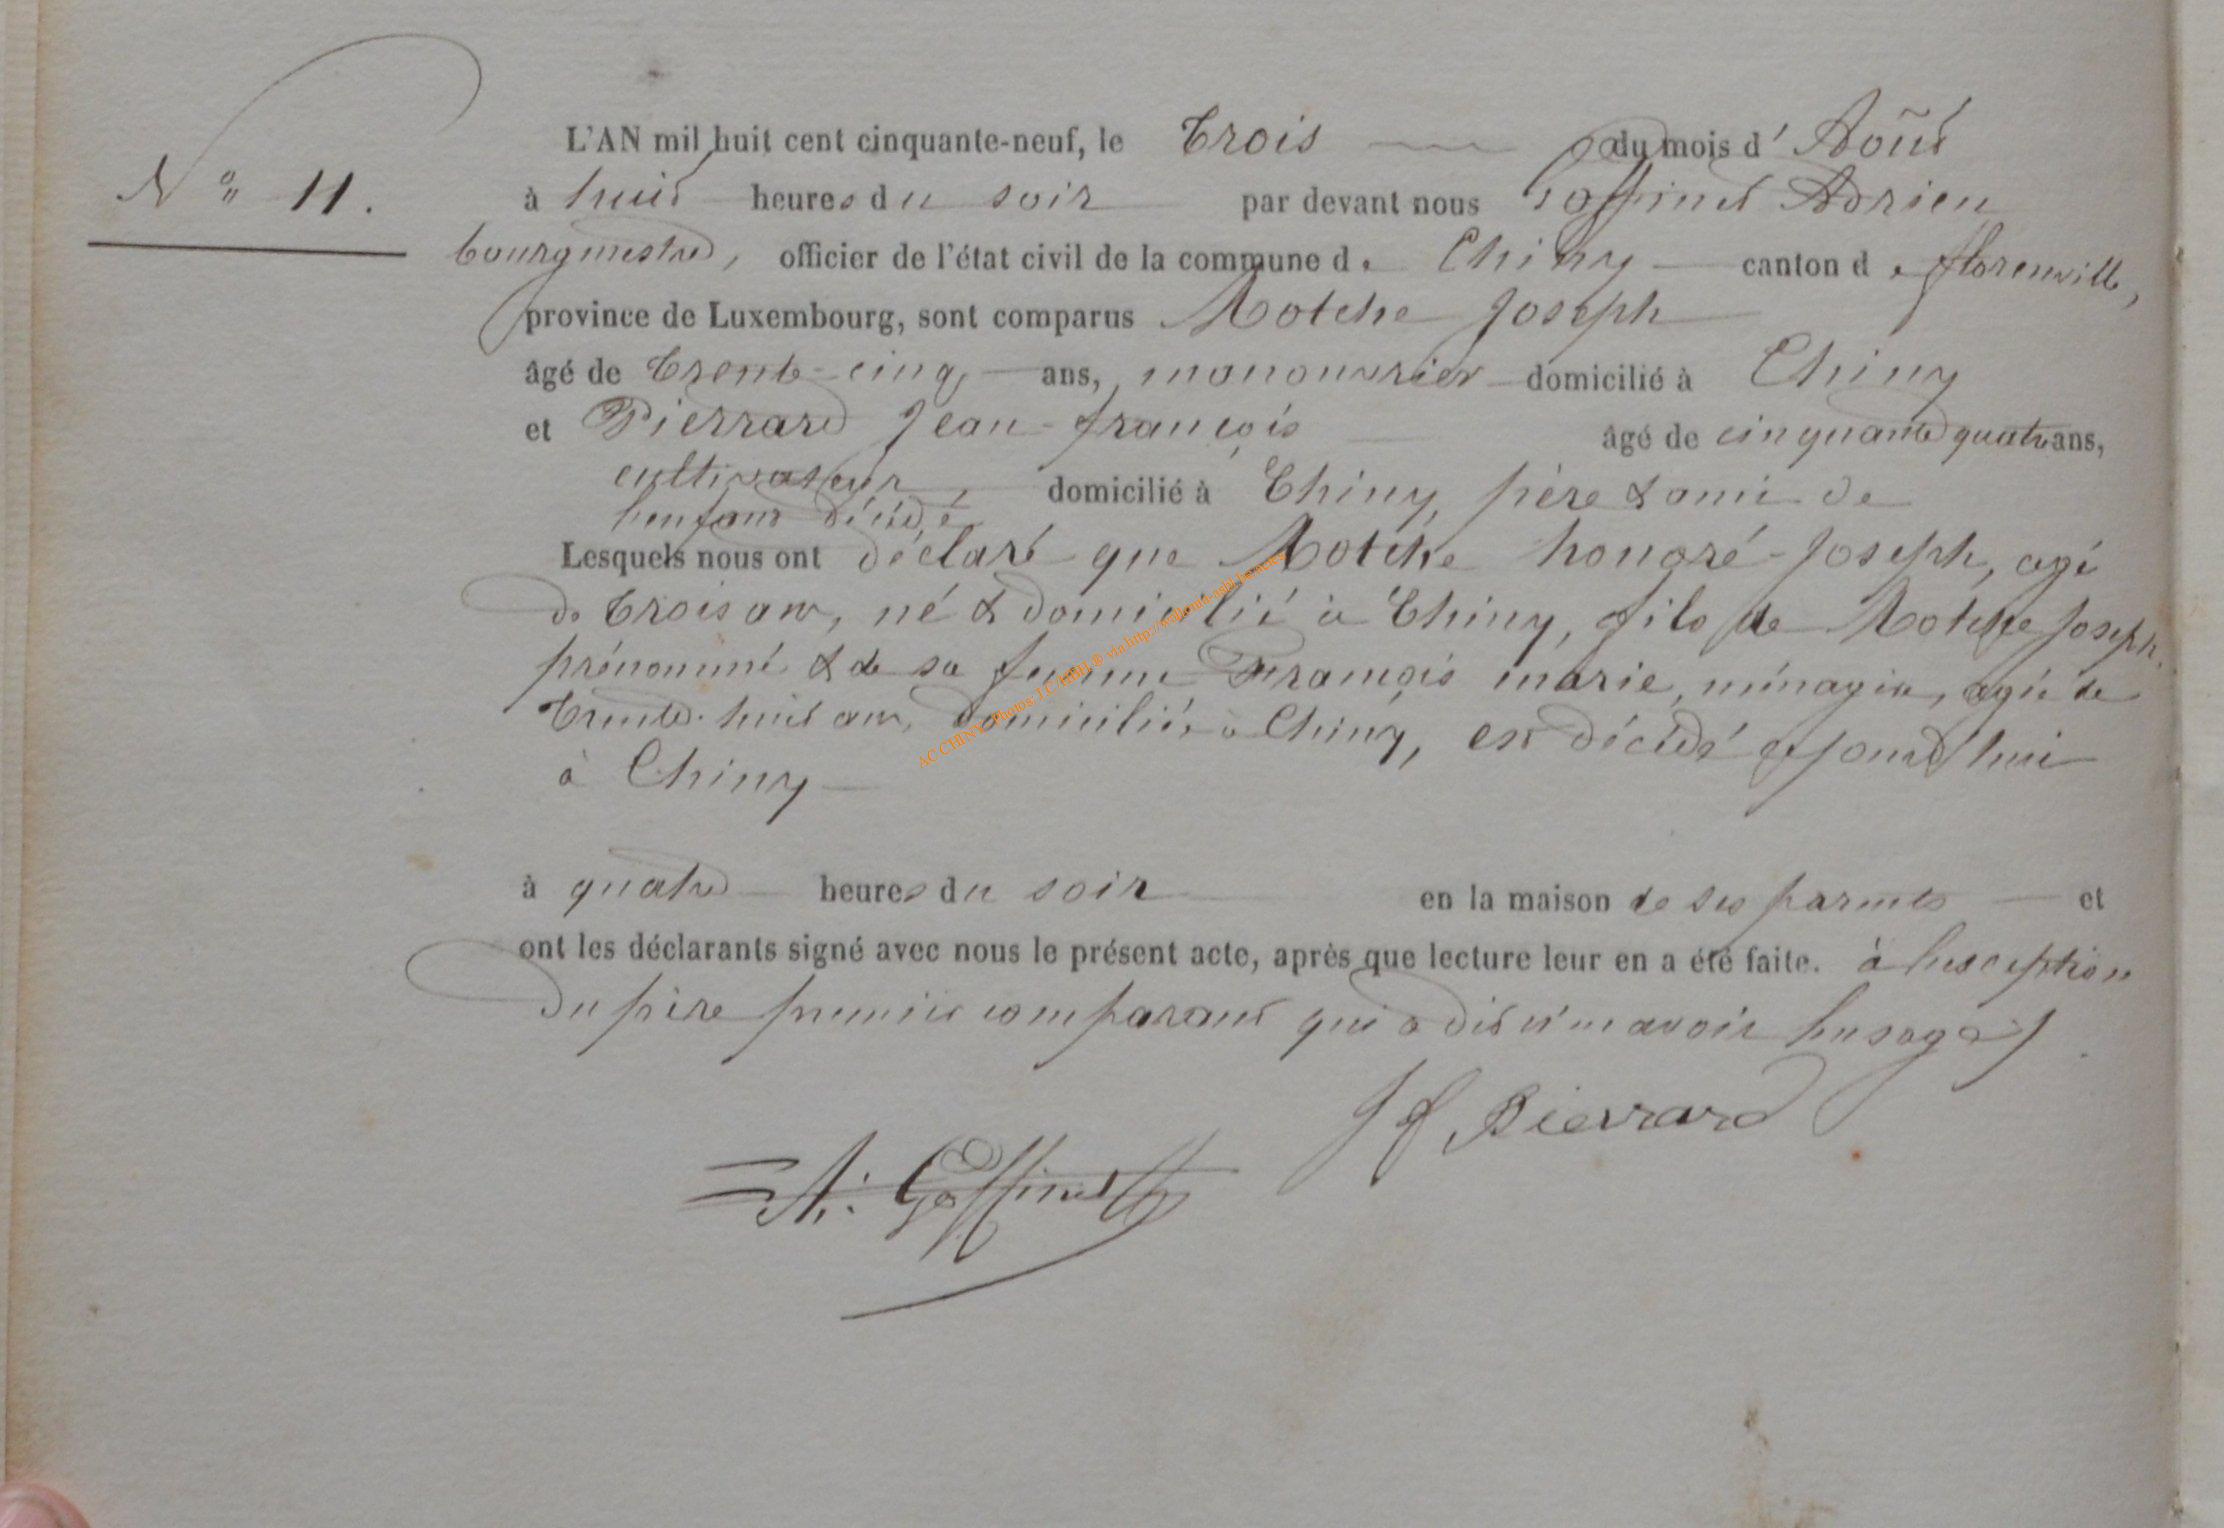 L'AN mil huit cent cinquante-neuf, le trois du mois d' Août
N° 11.
à huit heures du soir par devant nous Goffinet Adrien
bourgmestre, officier de l'état civil de la commune de Chiny canton de florenville,
province de Luxembourg, sont comparus Motche Joseph
âgé de trente-cinq ans, manouvrier domicilié à Chiny
et Pierrard Jean-françois âgé de cinquante quatre ans,
cultivateur, domicilié à Chiny, père & ami de
l'enfant décédé
Lesquels nous ont déclaré que Motche honoré-Joseph, agé
de trois ans, né & domicilié à Chiny, fils de Motche Joseph
prénommé & de sa femme François marie, ménagère, agée de
trente-huit ans, domiciliée à Chiny, est décédé aujourd'hui
à Chiny
à quatre heures du soir en la maison de ses parents et
ont les déclarants signé avec nous le présent acte, après que lecture leur en a été faite. à l'exception
du père premier comparant qui a dit n'en avoir l'usage
Jf Pierrard
A. Goffinet
AC CHINY Photos J.C